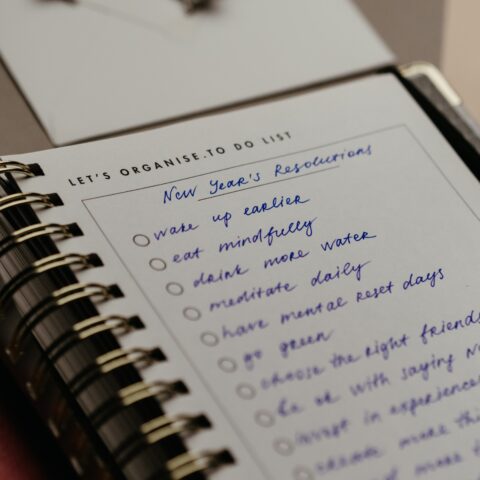 LET'S ORGANISE.TO DO LIST
New Year's Resolutions
wake up earlier
eat mindfully
drink more water
meditate daily
have mental reset days
go green
choose the right friends
be ok with saying
invest in experiences
more
more